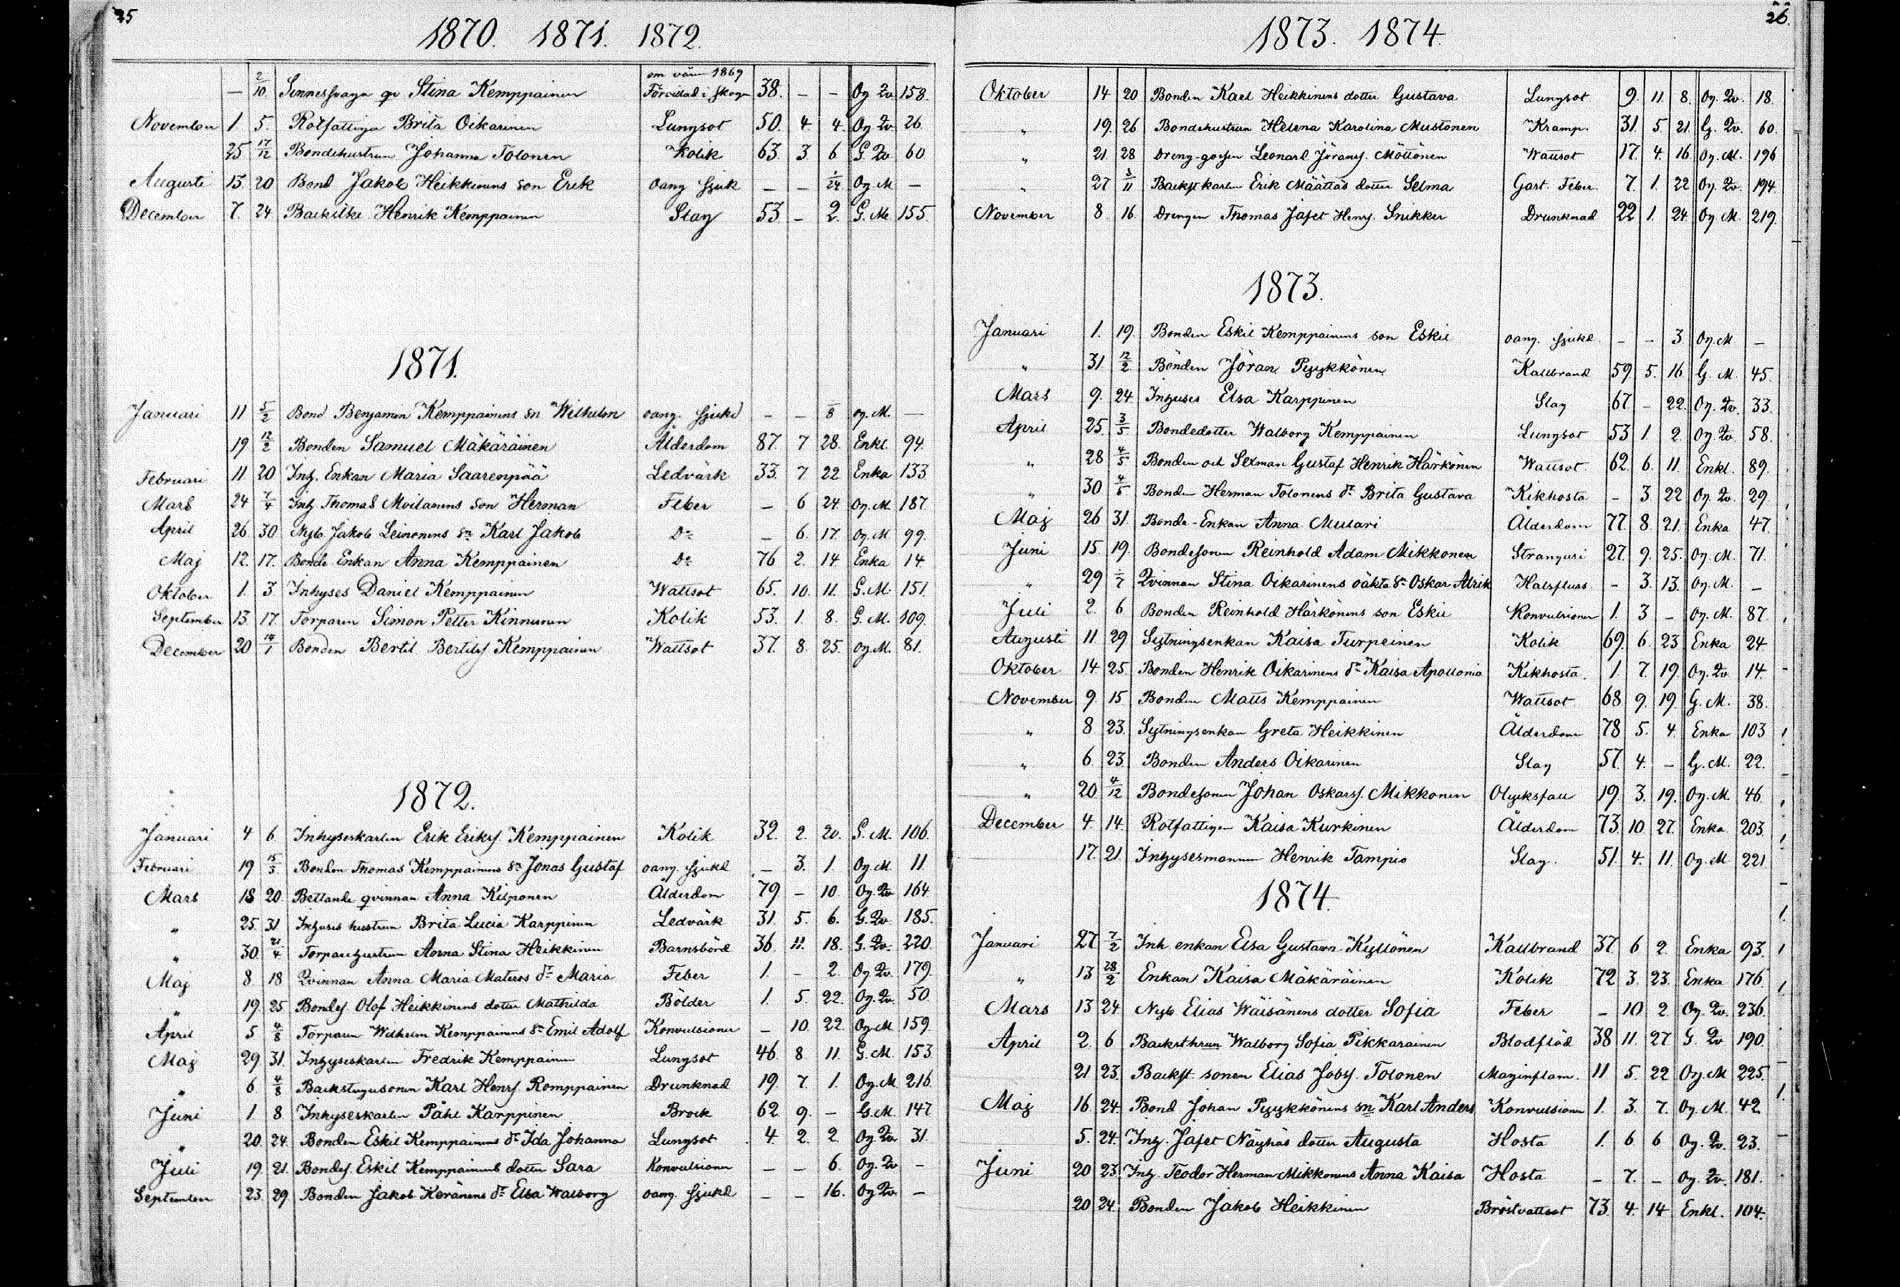 25
1870. 1871. 1872.
— 2/10 Sinnessvaga qv Stina Kemppainen om våren 1869 Förvillad i skogen 38. – – Og Qv. 158.
November 1. 5. Rotfattiga Brita Oikarinen Lungsot 50. 4. 4. Og Qv. 26.
25 17/12 Bondehustrun Johanna Tolonen Kolik 63. 3. 6 G. Qv 60
Augusti 13. 20 Bond Jakob Heikkinens son Erik oang sjuk – – 1/24 Og M –
December 7. 24 Henrik Kemppainen Slag 53 – 2. G. M. 155.
1871.
Januari 11 5/2 Bond Benjamin Kemppainens sn Wilhelm oang. sjukd – – 8 og. M. —
19 12/2 Bonden Samuel Mäkäräinen Ålderdom 87. 7 28. Enkl. 94.
Februari 11 20 Inh. Enkan Maria Saarenpää Ledvärk 33. 7 22 Enka 133
Mars 24 7/4 Inh Thomas Moilanens son Herman Feber – 6 24. Og. M. 187.
April 26. 30. Nyb. Jakob Leinonens sn Karl Jakob Do – 6. 17. Og. M. 99.
Maj 12. 17. Bonde Enkan Anna Kemppainen Do 76 2. 14 Enka 14
Oktober 1. 3 Inhyses Daniel Kemppainen Wattsot 65. 10. 11. G. M. 151.
September 13 17. Torparen Simon Petter Kinnunen Kolik 53. 1. 8. G. M. 109.
December 20 14/1 Bonden Bertil Bertils. Kemppainen Wattsot 37. 8. 25. og M. 81.
1872.
Januari 4 6. Inhyseskarlen Erik Eriks. Kemppainen Kolik 32. 2. 20. G. M. 106.
Februari 19 15/3 Bonden Thomas Kemppainens sn Jonas Gustaf oang. sjukd – 3. 1. Og. M 11.
Mars 18 20. Bettande qvinnan Anna Kilponen Ålderdom 79 – 10. Og. Qv 164
" 25. 31 Inhyses hustrun Brita Lucia Karppinen Ledvärk 31. 5. 6. G. Qv. 185.
" 30 21/4 Torparehustrun Anna Stina Heikkinen Barnsbörd 36. 11. 18. G. Qv. 220.
Maj 8. 18 Qvinnan Anna Maria dr Maria Feber 1. – 2. Og Qv. 179.
" 19. 25 Bondes Olof Heikkinens dotter Mathilda Bölder 1. 5. 22. Og. Qv. 50.
April 5 4/8 Torparen Wilhelm Kemppainens sn Emil Adolf Konvulsioner – 10. 22. Og M. 159.
Maj 29. 31. Inhyseskarlen Fredrik Kemppainen Lungsot 46. 8. 11. G. M. 153
" 6 4/8 Backstugusonen Karl Henrs. Romppainen Drunknad 19. 7. 1. Og. M. 216.
Juni 1. 8 Inhyseskarlen Påhl Karppinen Bråck 62. 9. – G. M. 147
" 20. 24. Bonden Eskil Kemppainens dr Ida Johanna Lungsot. 4. 2. 2. Og Qv. 31.
Juli 19. 21. Bondes Eskil Kemppainens dotter Sara Konvulsioner – – 6. Og. Qv –
September 23. 29. Bonden Jakob Keränens dr Elsa Walborg oang. sjukd – – 16. Og Qv. –
26.
1873. 1874.
Oktober 14 20 Bonden Karl Heikkinens dotter Gustava Lungsot 9. 11. 8. Og. Qv. 18.
" 19. 26 Bondehustrun Helena Karolina Mustonen Kramp. 31. 5. 21. G. Qv. 60.
" 21 28 Dreng-gossen Leonard Jörans. Möttönen Wattsot 17. 4. 16. Og. M. 196
" 27 3/11 Backst karlen Erik Määttäs dotter Selma Gast. Feber. 7. 1. 22 Og. Qv. 194.
November 8. 16 Drengen Thomas Jafet Henrs. Snikker Drunknad 22 1. 24. Og. M. 219.
1873.
Januari 1. 19. Bonden Eskil Kemppainens son Eskil oang. sjukd. – – 3. Og. M –
" 31. 12/2 Bonden Jöran Pyykkönen Kallbrand 59. 5. 16 G. M. 45.
Mars 9. 24. Inhyses Elsa Karppinen Slag 67. – 22. Og. Qv. 33.
April 25. 3/5 Bondedotter Walborg Kemppainen Lungsot 53 1. 2. Og. Qv. 58.
" 28 4/5 Bonden och Sexman Gustaf Henrik Härkönen Wattsot. 62. 6. 11. Enkl. 89.
" 30 4/5 Bonden Herman Tolonens dr Brita Gustava Kikhosta – 3. 22 Og. Qv. 29.
Maj 26 31. Bonde-Enkan Anna Mulari Ålderdom 77. 8. 21. Enka 47.
Juni 15. 19. Bondesonen Reinhold Adam Mikkonen Stranguri 27. 9. 25. Og. M. 71.
" 29 1/7 Qvinnan Stina Oikarinens oäkta sn Oskar Alrik Halsfluss – 3. 13. Og. M. –
Juli 2. 6 Bonden Reinhold Härkönens son Eskil Konvulsioner 1. 3 – Og. M. 87.
Augusti 11. 29 Sytningsenkan Kaisa Turpeinen Kolik 69. 6. 23 Enka 24
Oktober 14 25. Bonden Henrik Oikarinens dr Kaisa Apollonia Kikhosta. 1 7. 19. Og. Qv. 14.
November 9. 15 Bonden Matts Kemppainen Wattsot 68 9. 19 G. M. 38.
" 8 23. Sytningsenkan Greta Heikkinen Ålderdom 78 5. 4. Enka 103
" 6. 23. Bonden Anders Oikarinen Slag 57. 4. – G. M. 22.
" 20 4/12 Bondesonen Johan Oskars. Mikkonen Olycksfall 19. 3. 19. Og. M. 46.
December 4. 14. Rotfattigen Kaisa Kurkinen Ålderdom 73. 10 27. Enka 203.
17. 21. Inhysesmannen Henrik Tampio Slag. 51. 4. 11. Og. M 221.
1874.
Januari 27 7/2 Inh enkan Elsa Gustava Kyllönen Kallbrand 37. 6 2. Enka 93.
" 13 28/2 Enkan Kaisa Mäkäräinen Kolik 72 3. 23. Enka 176.
Mars 13 24. Nyb Elias Wäisänens dotter Sofia Feber – 10 2 Og. Qv. 236.
April 2. 6 Walborg Sofia Pikkarainen Blodflöd 38 11. 27 G. Qv 190.
21 23. Backst sonen Elias Jobs. Tolonen Maginflam. 11 5. 22 Og. M 225.
Maj 16 24. Bond Johan Pyykkönens sn Karl Anders Konvulsioner 1. 3. 7. Og M. 42.
5. 24. Inh. Jafet Näyhäs dotter Augusta Hosta 1. 6 6 Og. Qv. 23.
Juni 20 23. Inh. Teodor Herman Mikkonens Anna Kaisa Hosta – 7. – Og. Qv. 181.
20 24. Bonden Jakob Heikkinen Bröstvattsot 73 4. 14 Enkl. 104.